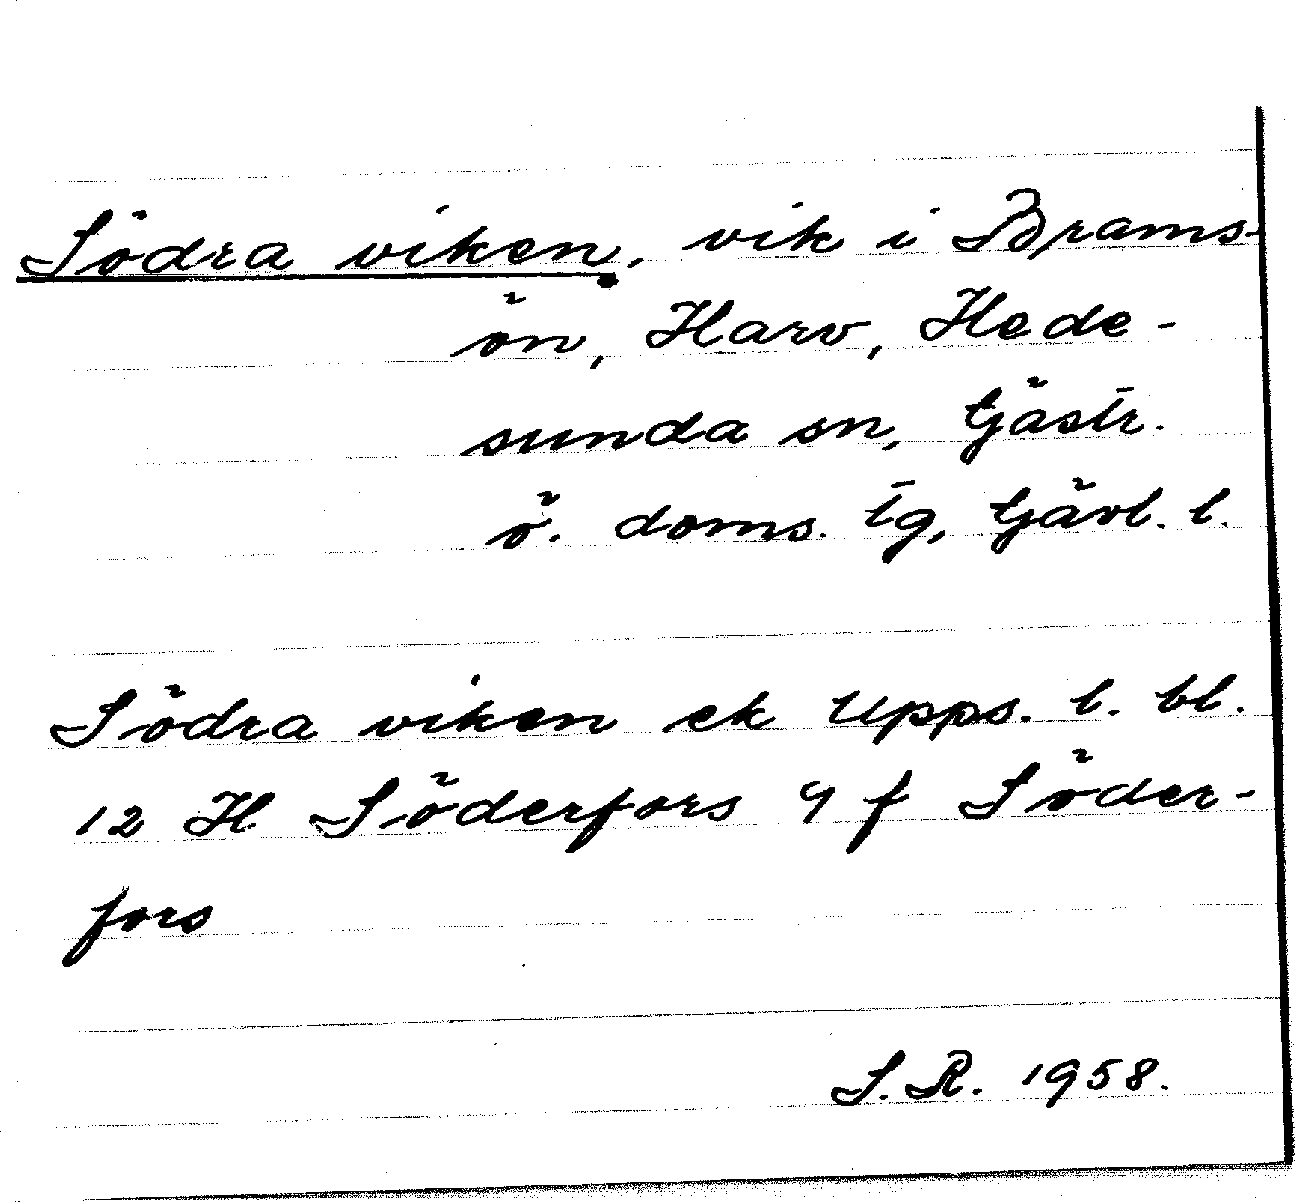 Södra viken, vik i Brams-
ön, Harv, Hede-
sunda sn, Gästr.
ö. doms. lg, Gävl. l.
Södra viken ek Upps. l. bl.
12 H Söderfors 9 f Söder-
fors
S.R. 1958.